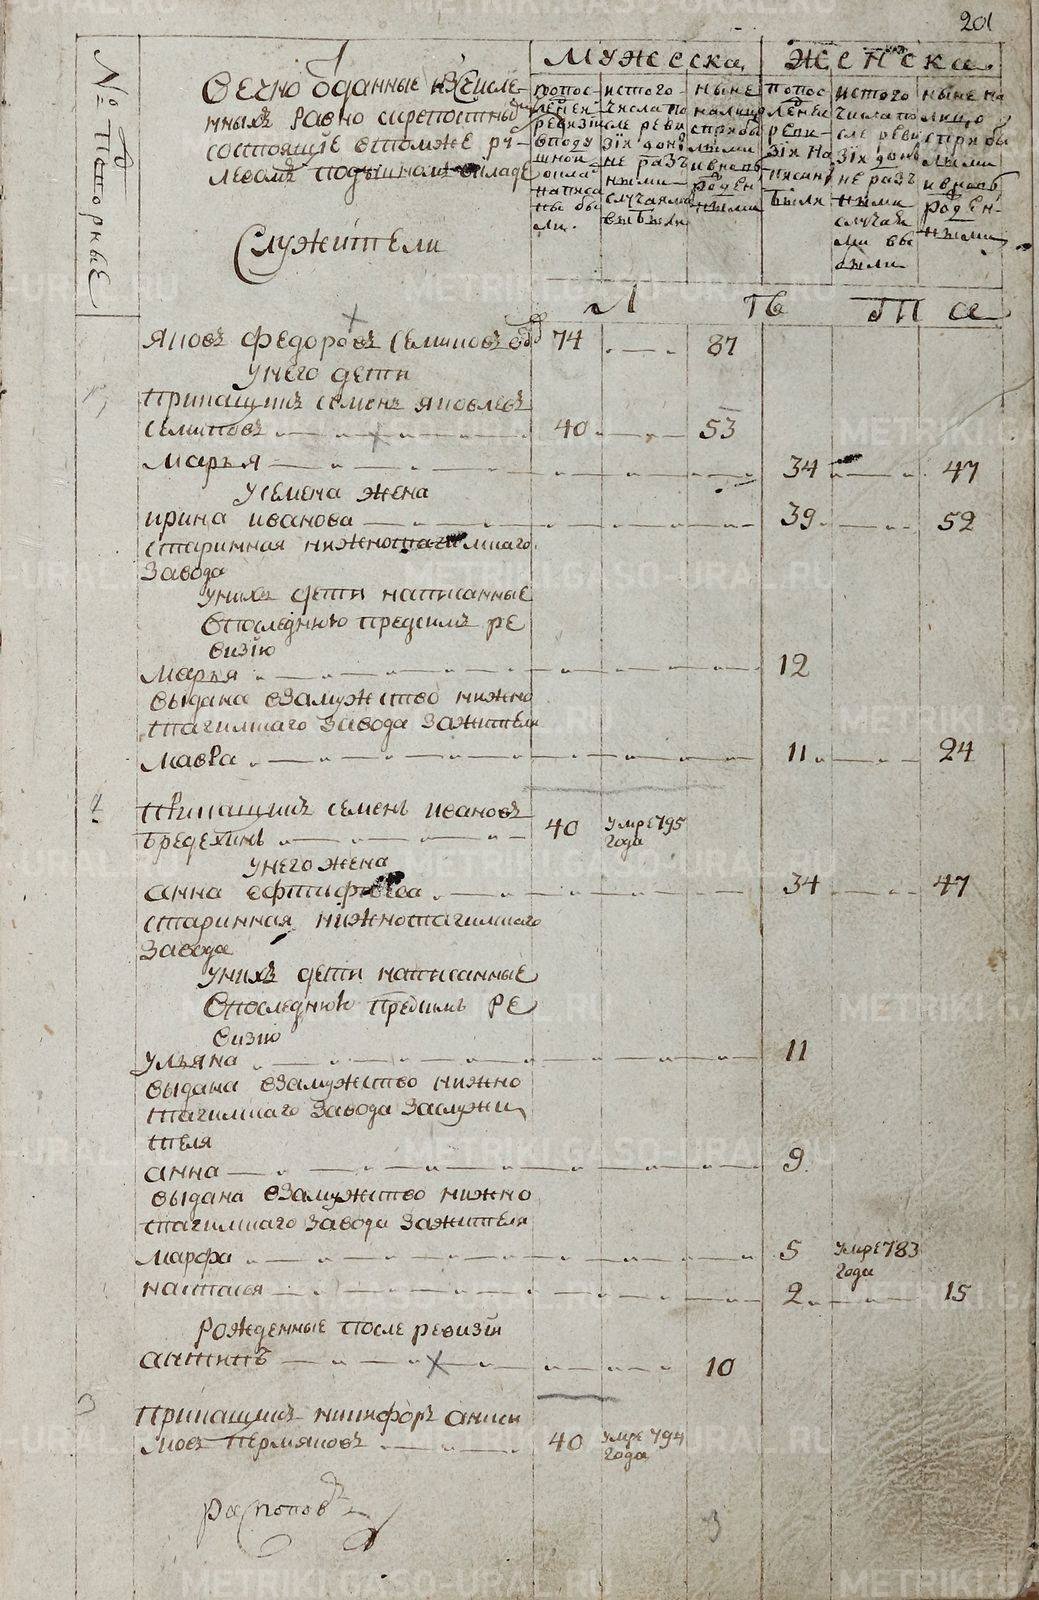 201
№ которые
1
Вечно отданные и счисле-
нныхъ равно крепостныхъ
состоящiе втомже ру-
левомъ подушномъ окладе
Служители
мужеска
женска
попос-
леднеи
ревизiи
вподу
шной
окла
написа
ны бы
ли.
истого
числа по
сле реви
зiи доны
не разъ
ными
случаями
выбыли
ныне
налицо
сприбы
лыми
ивновь
рожден
ными
попос
ледней
реви-
зiи на
писаны
были
истого
числа по
сле реви
зiи доны
не разъ
ными
случая
ми вы
были
ныне на
лицо
сприбы
лыми
ивновь
рожден-
ными
Л Ѣ Т А
яковъ федоровъ семиковъ вдовъ 74 87
унего дети
прикащикъ семенъ яковлевъ
семиковъ 40 53
марья 34 47
усемена жена
ирина иванова 39 52
старинная нижнотагилскаго
завода
унихъ дети написанные
впоследнюю предсимъ ре
визiю
марья 12
выдана взамужество нижно
тагилскаго завода зажителя
мавра 11 24
2
прикащикъ семенъ ивановъ
бредехинъ 40 умре 795
года
унего жена
анна ефтифѣева 34 47
старинная нижнотагилскаго
завода
унихъ дети написанные
впоследнюю предсимъ ре
визiю
ульяна 11
выдана взамужество нижно
тагилскаго завода заслужи
теля
анна 9
выдана взамужество нижно
тагилскаго завода зажителя
марфа 5 умре 783
года
насталья 2 15
рожденные после ревизiи
антипъ 10
3
прикащикъ никифоръ аниси
мовъ пермяковъ 40 умре 794
года
распоповъ
3
METRIKI.GASO-URAL.RU